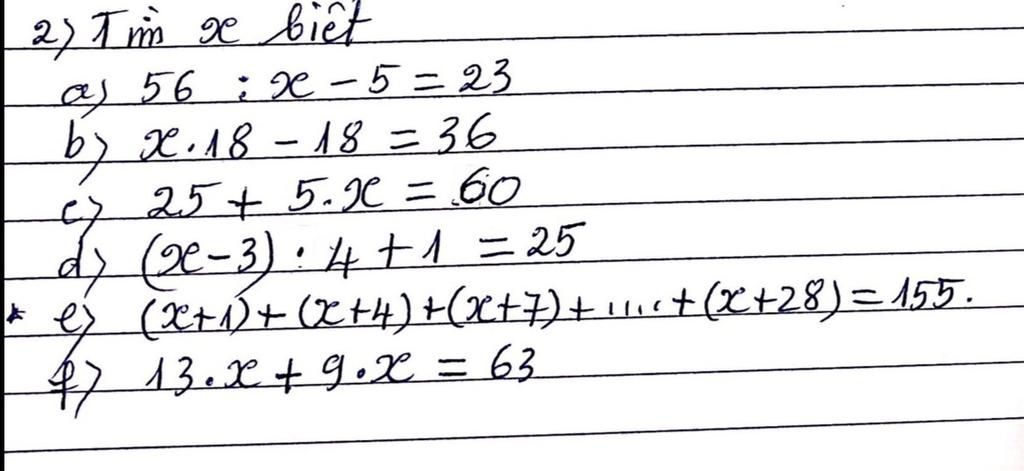 2) Tìm x biết
a) 56 : x - 5 = 23
b) x . 18 - 18 = 36
c) 25 + 5 . x = 60
d) (x - 3) : 4 + 1 = 25
* e) (x+1) + (x+4) + (x+7) + ..... + (x+28) = 155.
f) 13 . x + 9 . x = 63